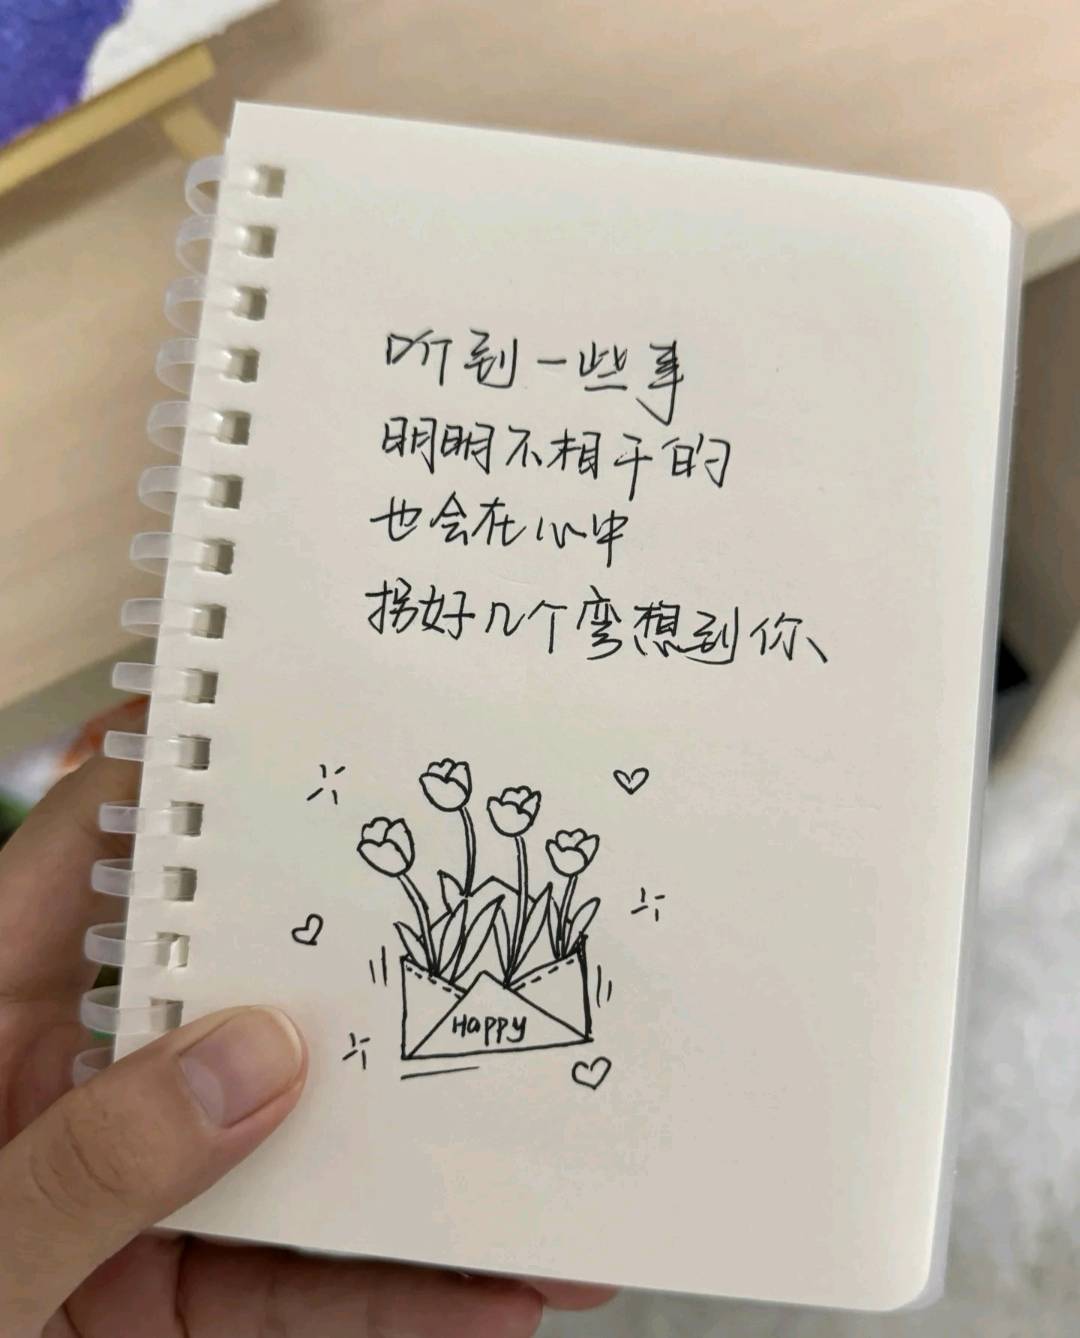 听到一些事
明明不相干的
也会在心中
拐好几个弯想到你、
Happy